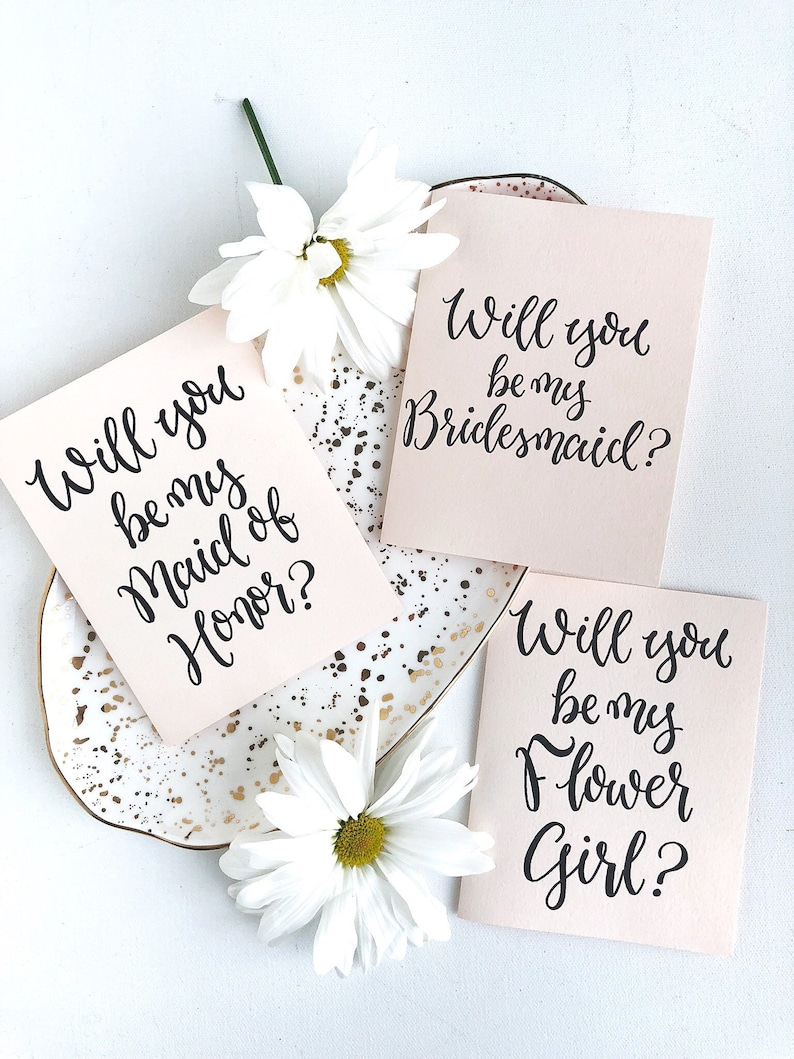 Will you
be my
Maid of
Honor?
Will you
be my
Bridesmaid?
Will you
be my
Flower
Girl?